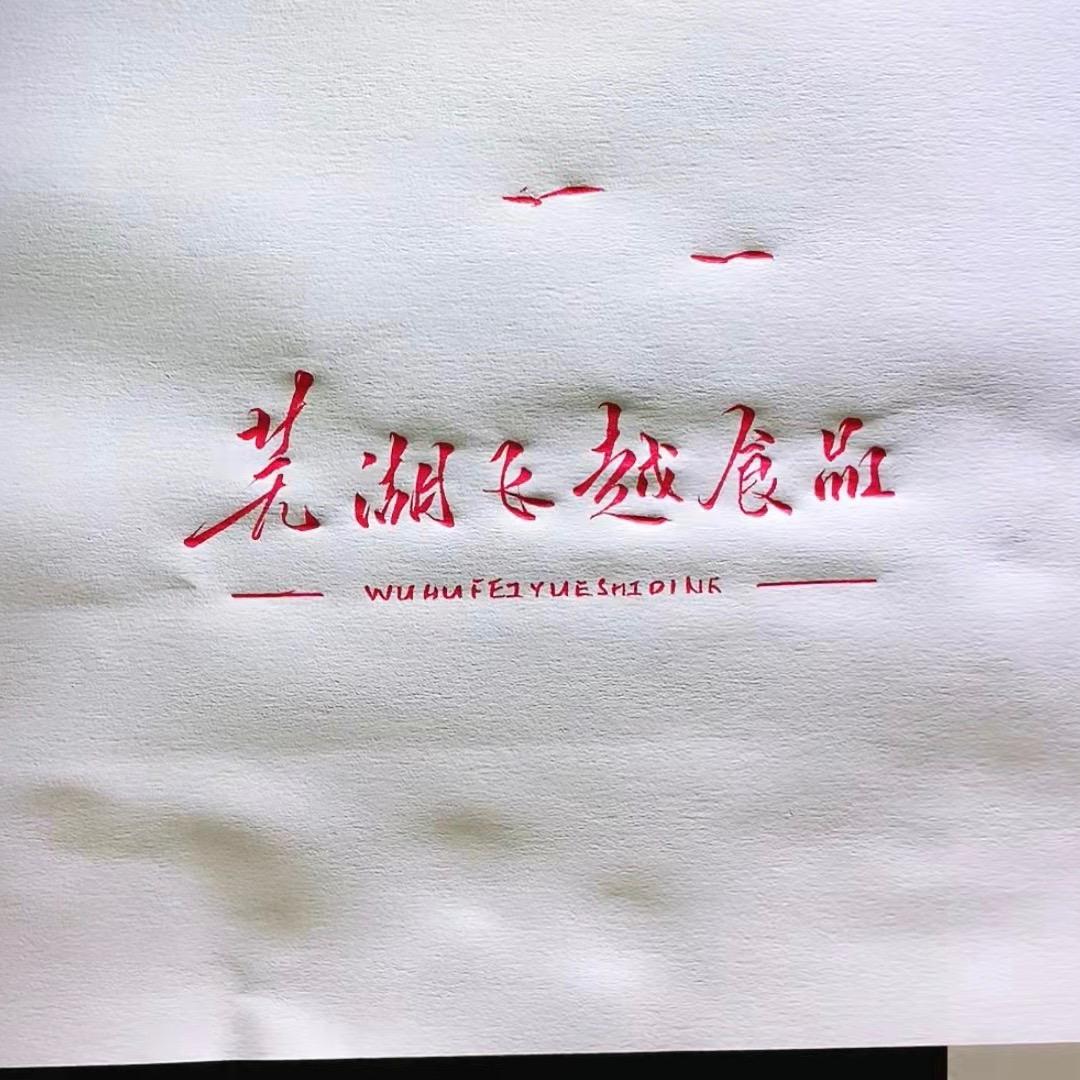 芜湖飞越食品
WUHUFEIYUESHIPINK